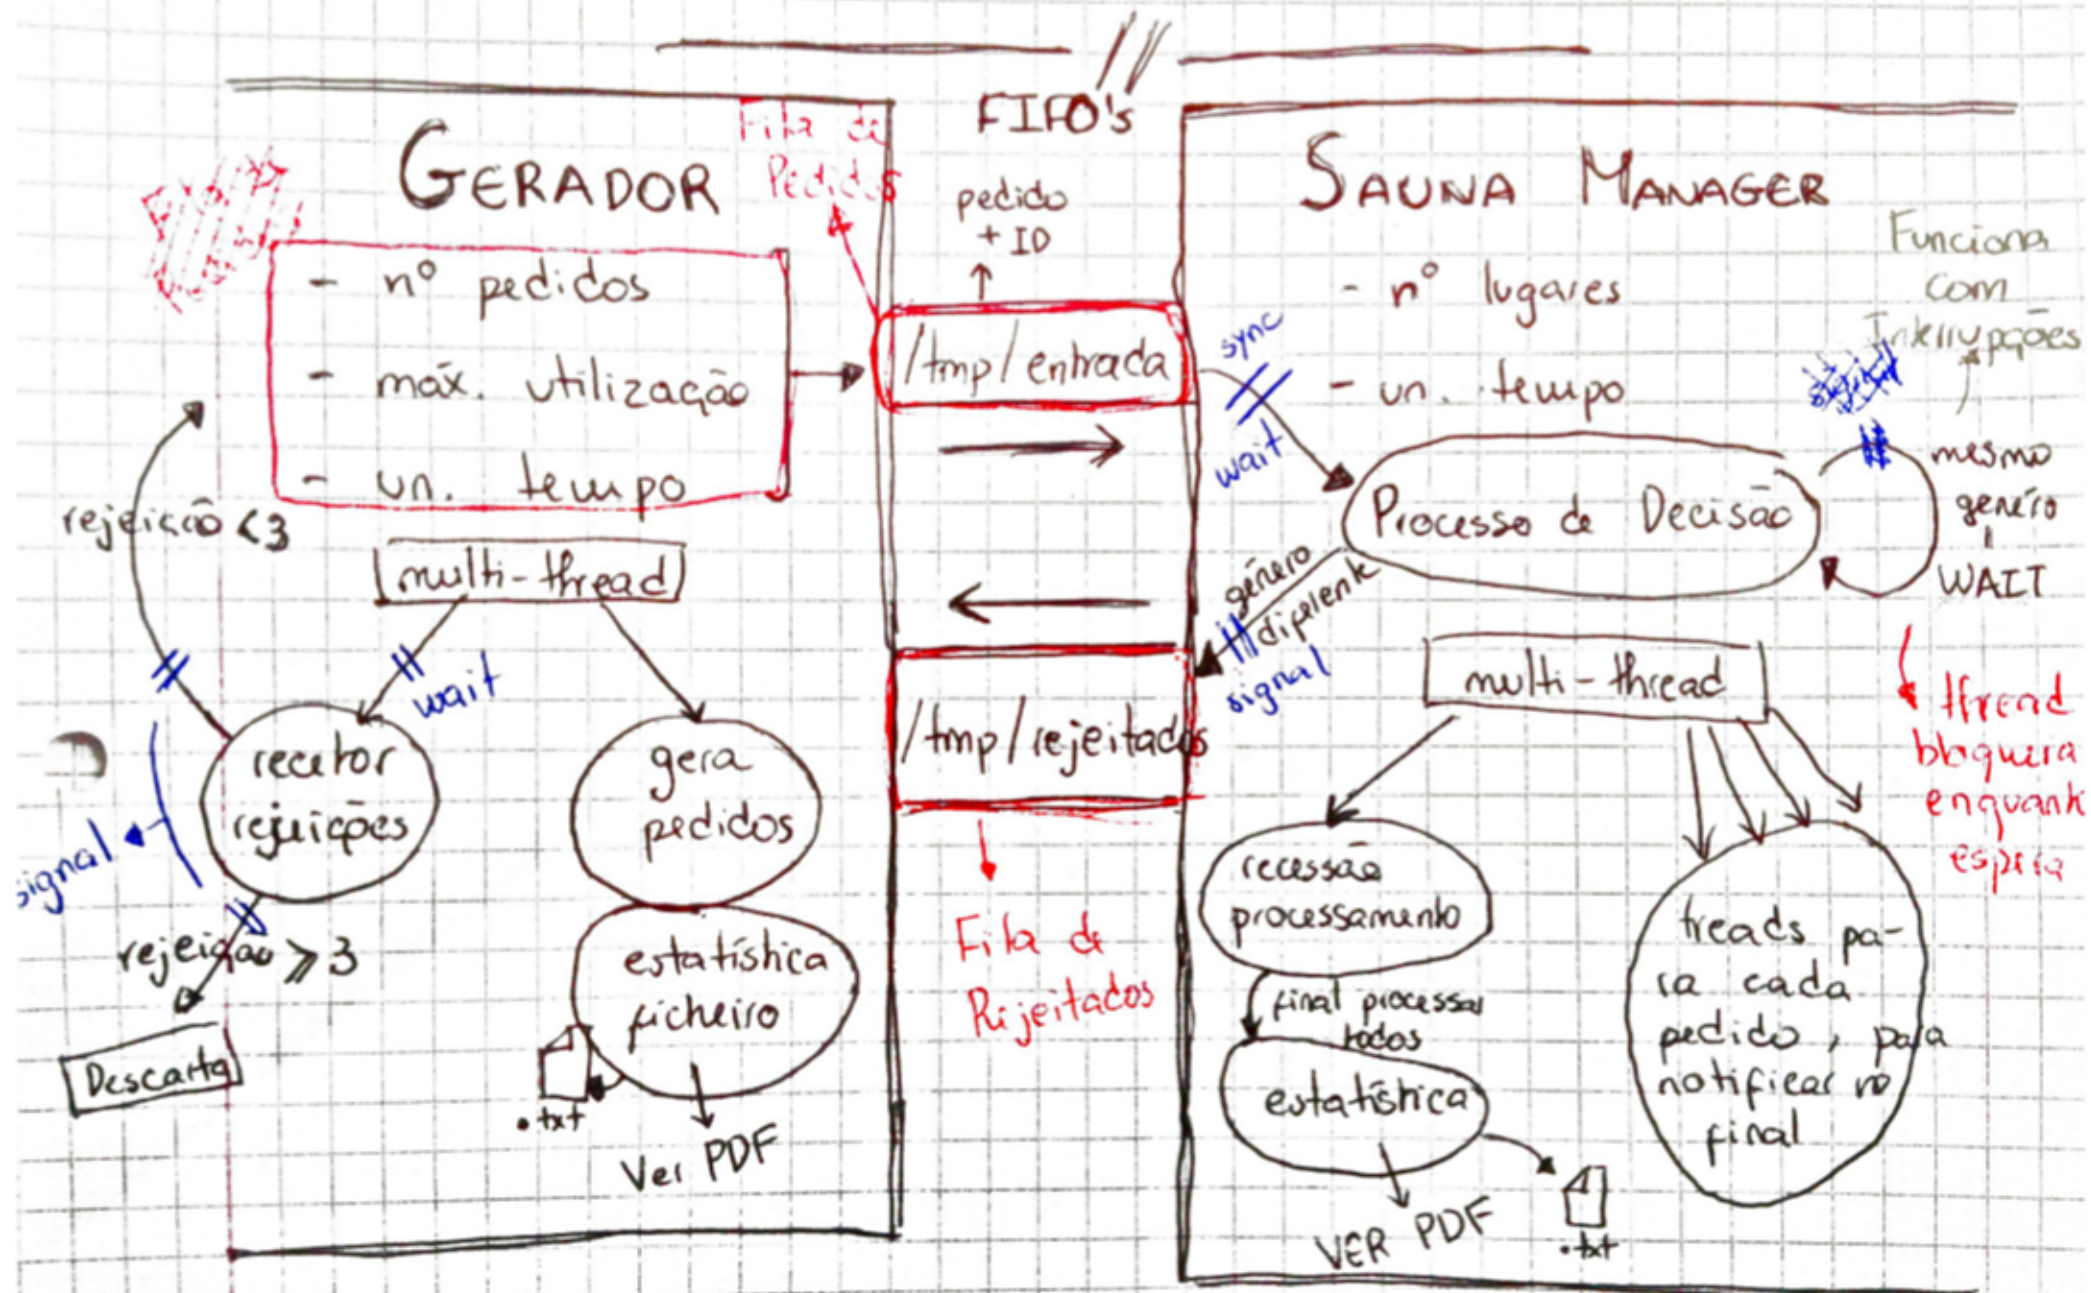 FIFO's
GERADOR
Fila de
Pedidos
- nº pedidos
- máx. utilização
- un. tempo
rejeição <3
multi-thread
wait
recetor
rejeições
signal
rejeição ≥ 3
Descarta
gera
pedidos
estatística
ficheiro
.txt
Ver PDF
pedido
+ ID
/tmp/entrada
/tmp/rejeitados
Fila de
Rijeitados
SAUNA MANAGER
- nº lugares
- un. tempo
Funciona
com
Interrupções
sync
wait
Processo de Decisão
mesmo
genéro
WAIT
género
diferente
signal
multi-thread
thread
bloqueia
enquant
espera
recessão
processamento
final processar
todos
estatística
VER PDF
.txt
treads pa-
ra cada
pedido, para
notificar no
final